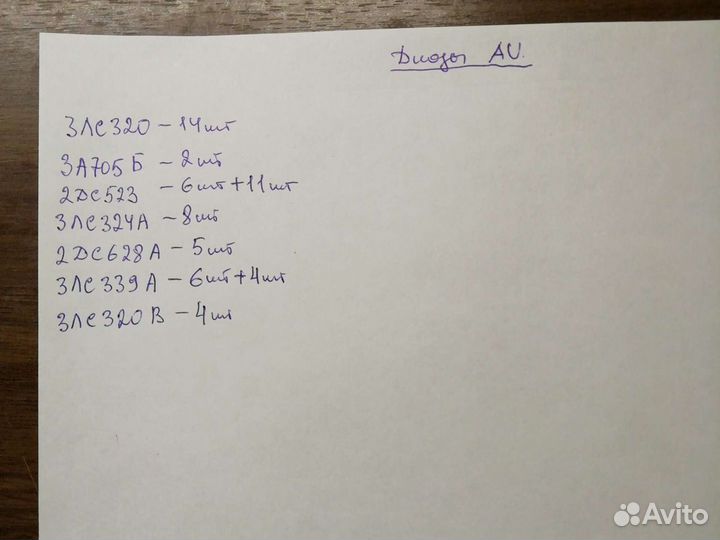 Диоды AU.
3ЛС320 - 14шт
3А705Б - 2шт
2DС523 - 6шт+11шт
3ЛС324А - 8шт
2DС628А - 5шт
3ЛС339А - 6шт+4шт
3ЛС320В - 4шт
Avito